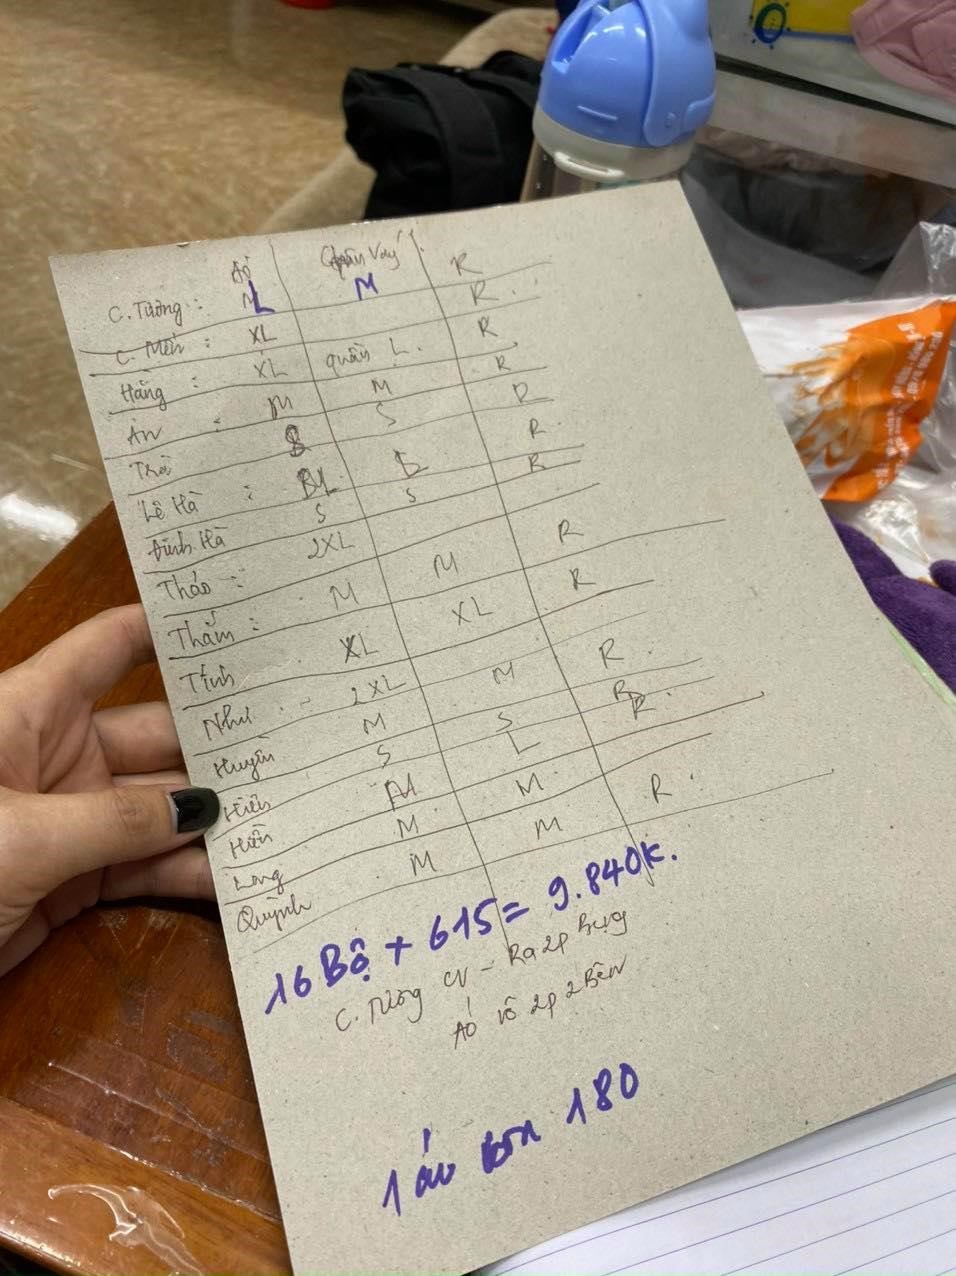 Áo Quần Váy
C. Tường : L M R
C. Mến : XL R.
Hằng : XL quần L. R
An : M M R
S R
Lê Hà : L R.
Đinh Hà S S R
Thảo : 2XL
Thắm : M M R
Tính XL XL R
Như 2XL
Huyền M M R.
Hiền S S R
L R.
Long M M
Quỳnh M M R.
16 Bộ + 615 = 9.840k.
C. Tường CV - Ra 2p Bụng
Áo vô 2p 2 Bên
1 áo 180